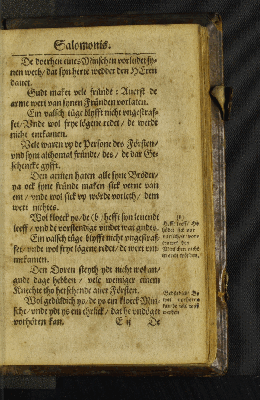 Salomonis.
De dorheit eines Minschen vorleidet sy-
nen wech/ dat syn herte wedder den HEren
dauet.
Gudt maket vele fründe: Auerst de
arme wert van synen Fründen vorlaten.
Ein valsch tüge blyfft nicht vngestraf-
fet/ Vnde wol frye lögene redet/ de werdt
nicht entkamen.
Vele waren vp de Persone des Försten/
vnd syn althomal fründe/ des/ de dar Ge-
schencke gyfft.
Den armen haten alle syne Bröder/
ya ock syne fründe maken sick verne van
em/ vnde wol sick vp wörde vorleth/ dem
wert nichtes.
Wol kloeck ys/ de (b) hefft syn leuendt
leeff/ vnd de vorstendige vindet wat gudes.
Ein valsch tüge blyfft nicht vngestraf-
fet/ vnde wol frye lögene redet/ de wert vm-
kamen.
Den Doren steyth ydt nicht wol an/
gude dage hebben/ vele weiniger einem
Knechte tho herschende auer Försten.
Wol gedüldich ys/ de ys ein kloeck Min-
sche/ vnde ydt ys em ehrlick/ dat he vndöget
vorhören kan.
E ij De